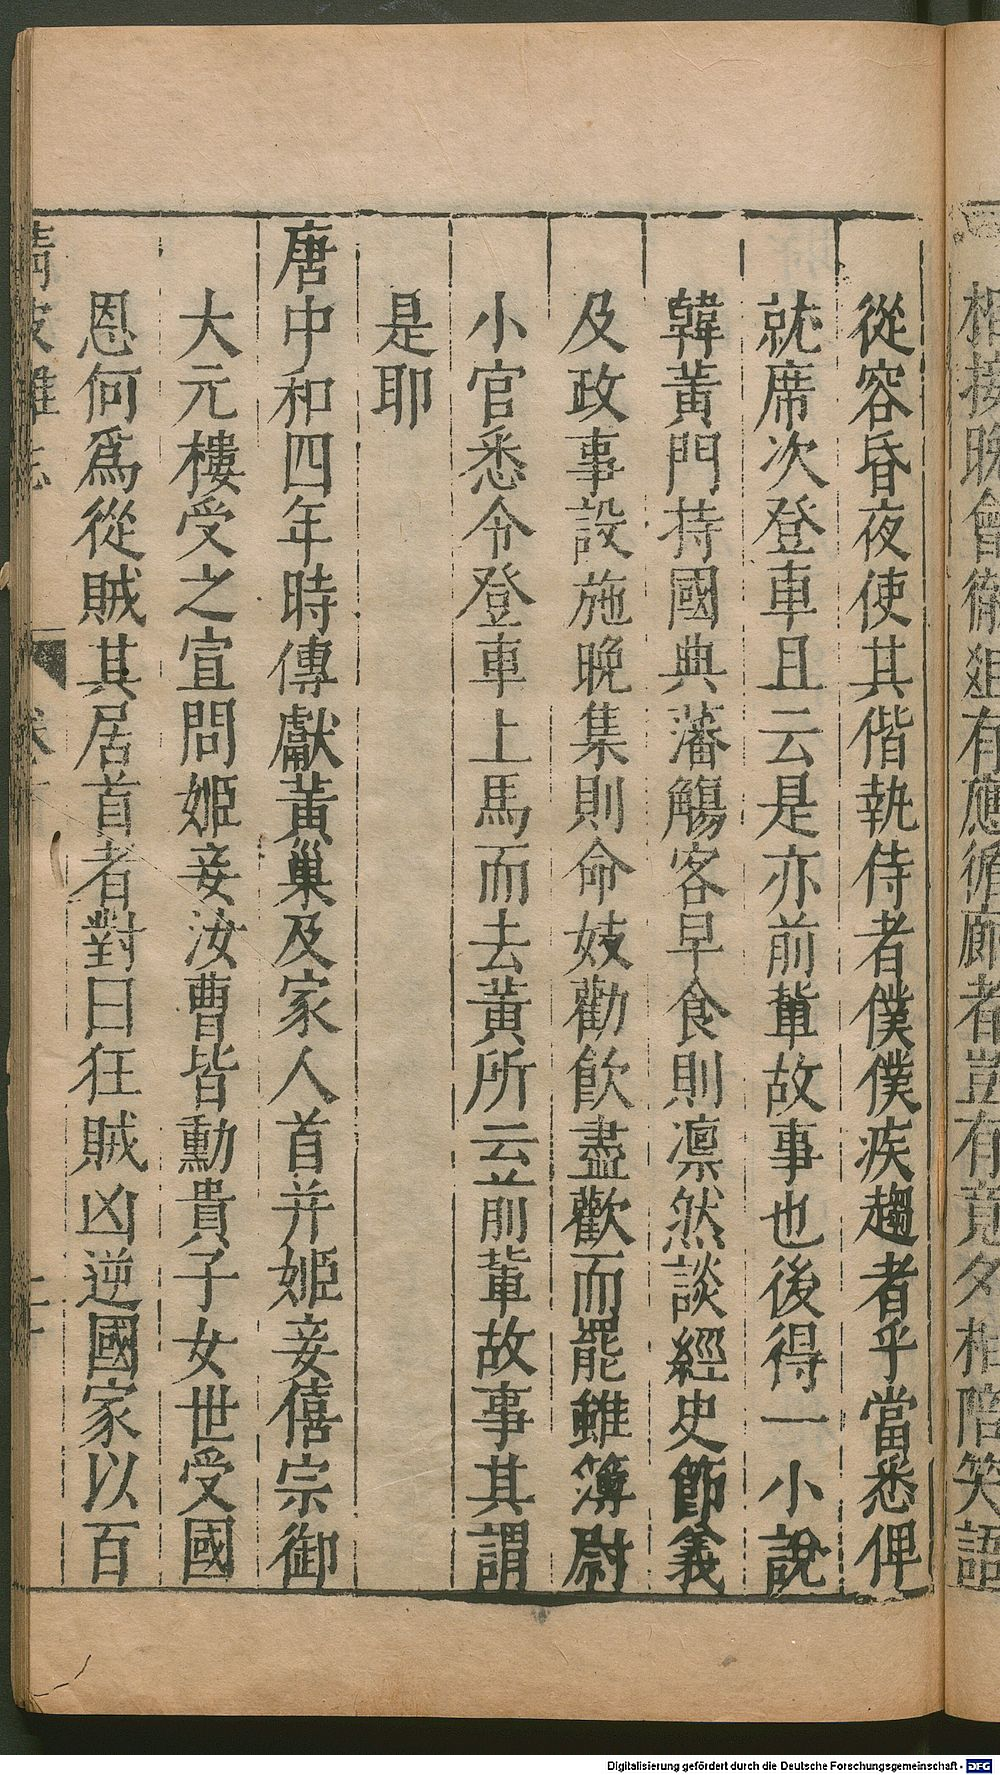 相接晚會徹俎有應循廊者豈有竟夕相陪笑語
從容昏夜使其偕執侍者僕僕疾趨者乎當悉俾
就席次登車且云是亦前輩故事也後得一小說
韓黃門持國典藩觴客早食則凛然談經史節義
及政事設施晚集則命妓勸飲盡歡而罷雖簿尉
小官悉令登車上馬而去黃所云前輩故事其謂
是耶
唐中和四年時傳獻黃巢及家人首并姬妾僖宗御
大元樓受之宣問姬妾汝曹皆勳貴子女世受國
恩何爲從賊其居首者對曰狂賊凶逆國家以百
清波雜志
Digitalisierung gefördert durch die Deutsche Forschungsgemeinschaft - DFG